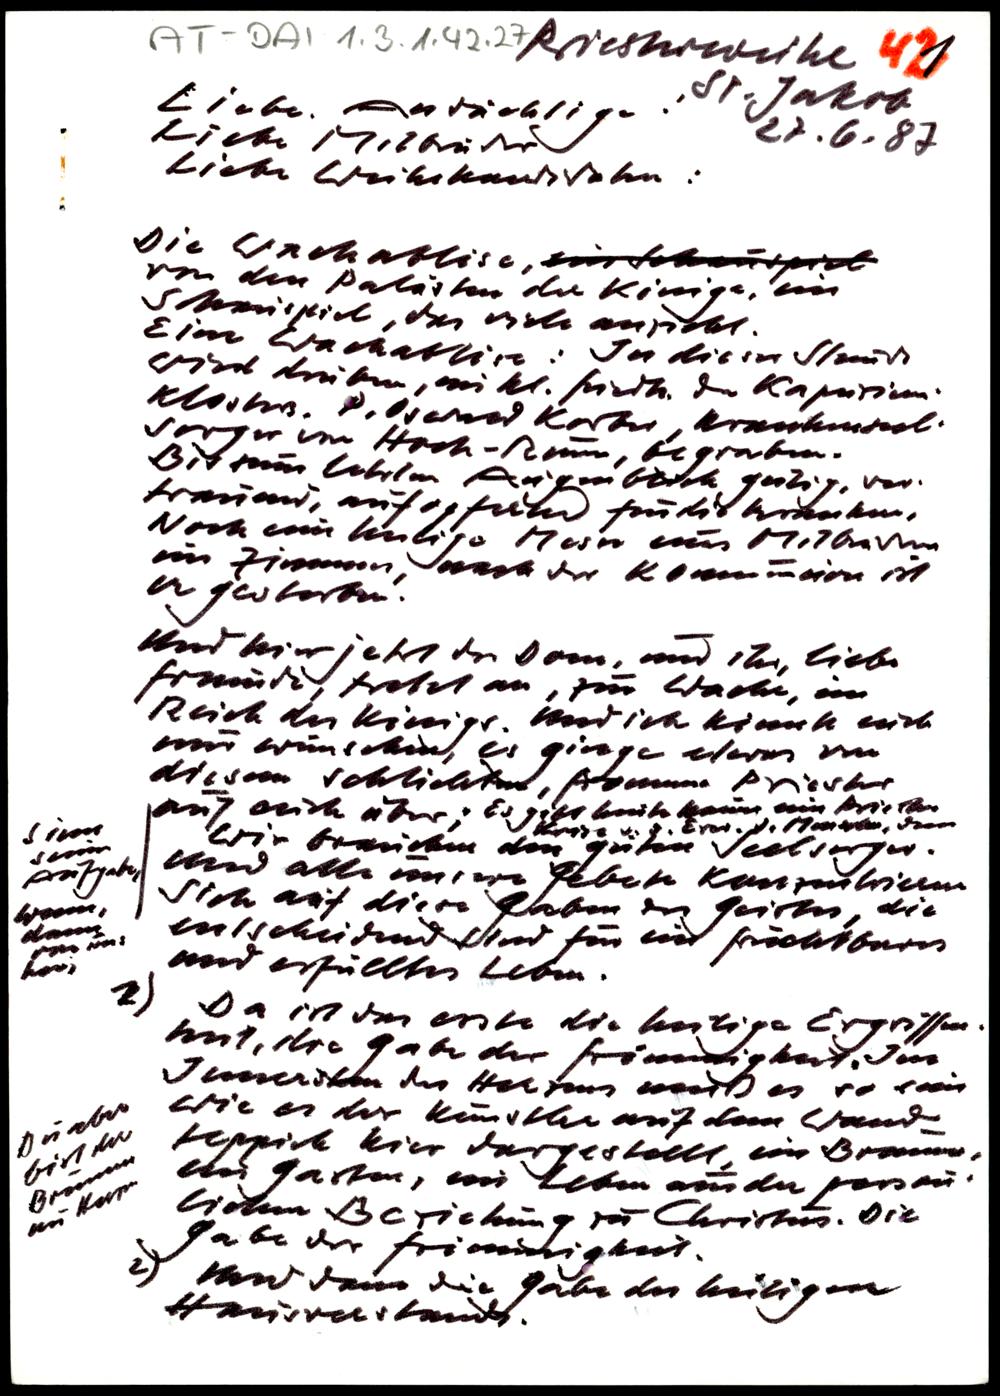 AT-DAI 1.3.1.42.27
Priesterweihe 42 1
St. Jakob
27.6.87
Liebe Andächtige!
Liebe Mitbrüder
Liebe Weihekandidaten:
Die Wachablöse, ein Schauspiel
vor den Palästen der Könige, ein
Schauspiel, das viele anzieht.
Eine Wachablöse: In dieser Stunde
wird drüben, im kl. Friedh. des Kapuziner-
klosters. P. Korber, Krankenseel-
sorger von Hoch-Rum, begraben.
Bis zum letzten Augenblick gütig, ver-
trauend, aufopfernd für die Kranken.
Noch eine heilige Messe eines Mitbruders
im Zimmer, nach der Kommunion ist
er gestorben.
Und hier jetzt der Dom, und ihr, liebe
Freunde, tretet an, zur Wache, im
Reich des Königs. Und ich könnte euch
nur wünschen, es ginge etwas von
diesem schlichten, frommen Priester
auf euch über; Es gibt heute kaum ein Priester
Wir brauchen den guten Seelsorger.
Und alle unsere Gebete konzentrieren
sich auf diese Gaben des Geistes, die
entscheidend sind für ein fruchtbares
und erfülltes Leben.
seine
Aufgabe,
wenn,
dann
von
1) Da ist das erste die heilige Ergriffen-
heit, die Gabe der Frömmigkeit. Im
Innersten des Herzens muß es so sein
wie es der Künstler auf dem Wand-
teppich hier dargestellt, ein Brunnen,
ein Garten, ein Leben aus der persön-
lichen Beziehung zu Christus. Die
Gabe der Frömmigkeit.
Du aber
bist der
Brunnen
im Herzen
2) Und dann die Gabe des heiligen
Hausverstands.